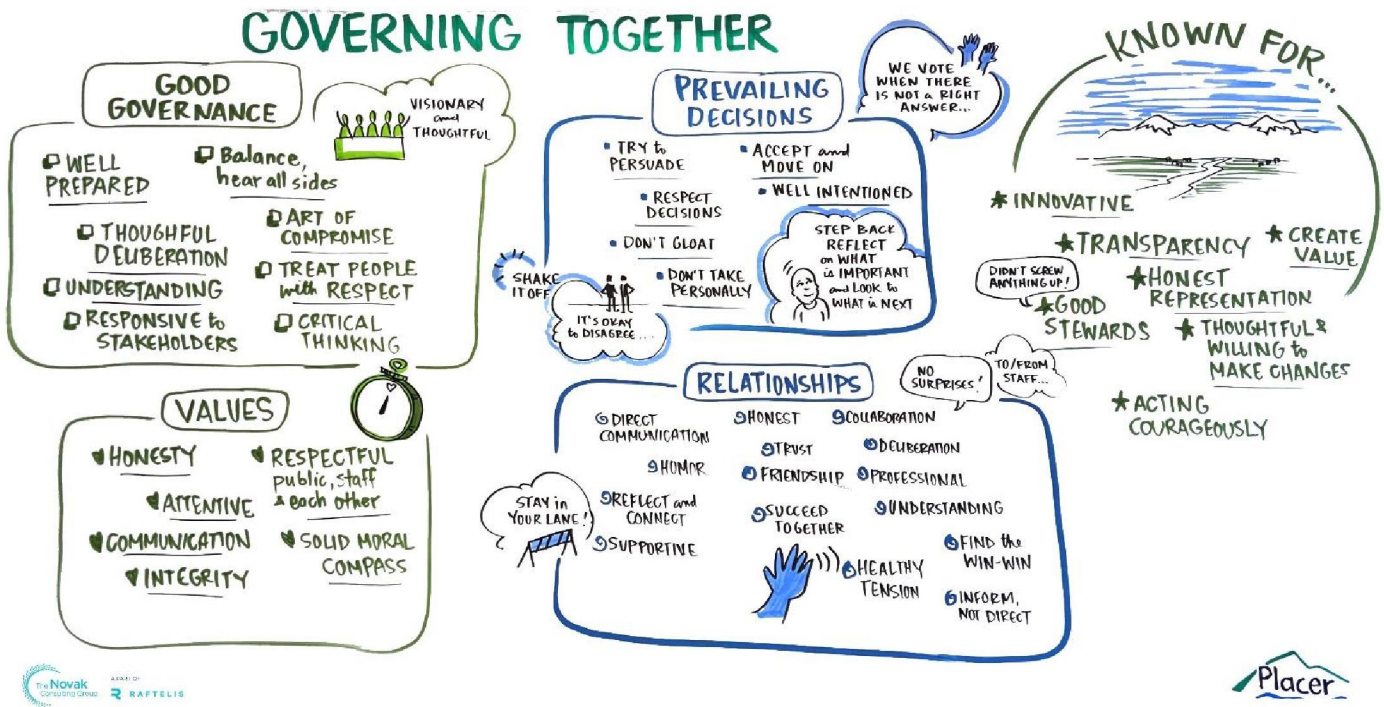 GOVERNING TOGETHER
GOOD
GOVERNANCE
VISIONARY
and
THOUGHTFUL
WELL
PREPARED
Balance,
hear all sides
THOUGHFUL
DELIBERATION
ART OF
COMPROMISE
UNDERSTANDING
TREAT PEOPLE
with RESPECT
RESPONSIVE to
STAKEHOLDERS
CRITICAL
THINKING
VALUES
HONESTY
RESPECTFUL
public, staff
& each other
ATTENTIVE
COMMUNICATION
SOLID MORAL
COMPASS
INTEGRITY
PREVAILING
DECISIONS
WE VOTE
WHEN THERE
IS NOT a RIGHT
ANSWER...
TRY to
PERSUADE
ACCEPT and
MOVE ON
RESPECT
DECISIONS
WELL INTENTIONED
DON'T GLOAT
DON'T TAKE
PERSONALLY
STEP BACK
REFLECT
on WHAT
is IMPORTANT
and LOOK to
WHAT is NEXT
SHAKE
IT OFF
IT'S OKAY
to DISAGREE...
RELATIONSHIPS
NO
SURPRISES!
TO/FROM
STAFF...
DIRECT
COMMUNICATION
HONEST
COLLABORATION
TRUST
DELIBERATION
HUMOR
FRIENDSHIP
PROFESSIONAL
REFLECT and
CONNECT
SUCCEED
TOGETHER
UNDERSTANDING
SUPPORTIVE
HEALTHY
TENSION
FIND the
WIN-WIN
INFORM,
NOT DIRECT
STAY in
YOUR LANE!
KNOWN FOR...
INNOVATIVE
TRANSPARENCY
CREATE
VALUE
DIDN'T SCREW
ANYTHING UP!
HONEST
REPRESENTATION
GOOD
STEWARDS
THOUGHTFUL &
WILLING to
MAKE CHANGES
ACTING
COURAGEOUSLY
The Novak
Consulting Group
A PART OF
RAFTELIS
Placer